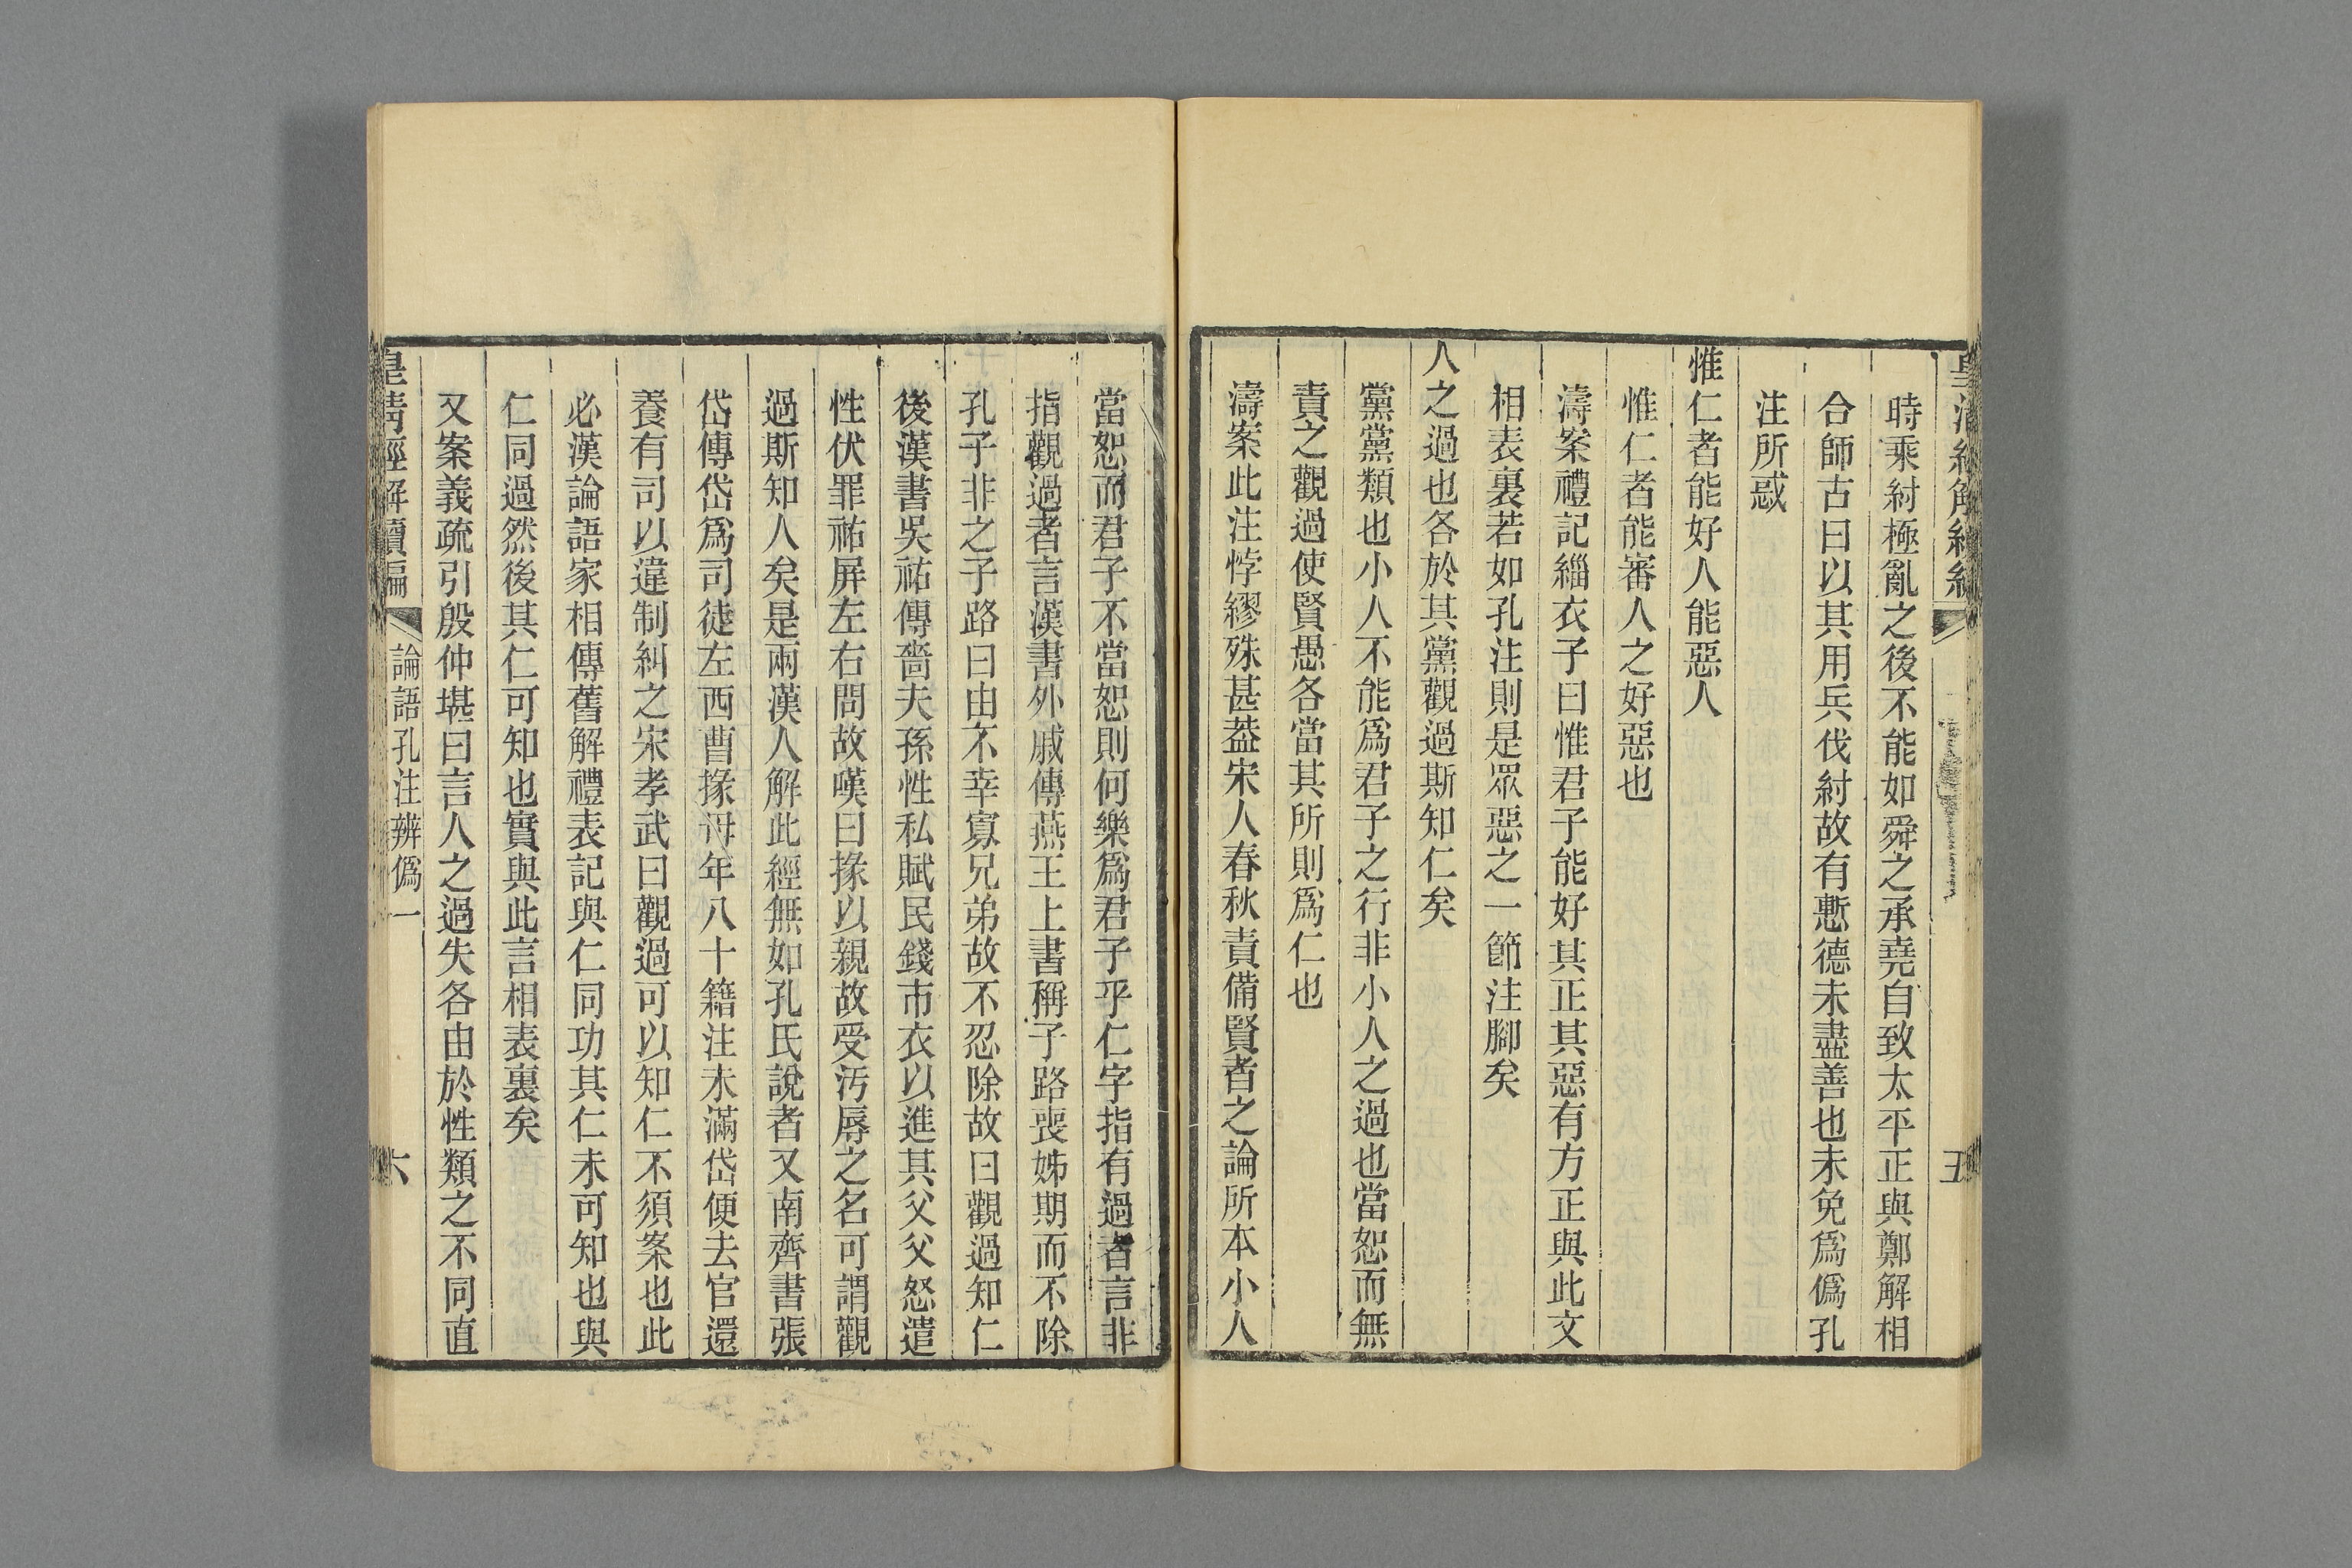 時乘紂極亂之後不能如舜之承堯自致太平正與鄭解相
合師古曰以其用兵伐紂故有慙德未盡善也未免爲僞孔
注所惑
惟仁者能好人能惡人
惟仁者能審人之好惡也
濤案禮記緇衣子曰惟君子能好其正其惡有方正與此文
相表裏若如孔注則是眾惡之一節注腳矣
人之過也各於其黨觀過斯知仁矣
黨黨類也小人不能爲君子之行非小人之過也當恕而無
責之觀過使賢愚各當其所則爲仁也
濤案此注悖繆殊甚葢宋人春秋責備賢者之論所本小人
當恕而君子不當恕則何樂爲君子乎仁字指有過者言非
指觀過者言漢書外戚傳燕王上書稱子路喪姊期而不除
孔子非之子路曰由不幸寡兄弟故不忍除故曰觀過知仁
後漢書吳祐傳嗇夫孫性私賦民錢市衣以進其父父怒遣
性伏罪祐屏左右問故嘆曰掾以親故受汚辱之名可謂觀
過斯知人矣是兩漢人解此經無如孔氏說者又南齊書張
岱傳岱爲司徒左西曹掾母年八十籍注未滿岱便去官還
養有司以違制糾之宋孝武曰觀過可以知仁不須案也此
必漢論語家相傳舊解禮表記與仁同功其仁未可知也與
仁同過然後其仁可知也實與此言相表裏矣
又案義疏引殷仲堪曰言人之過失各由於性類之不同直
皇清經解續編
論語孔注辨僞一
六